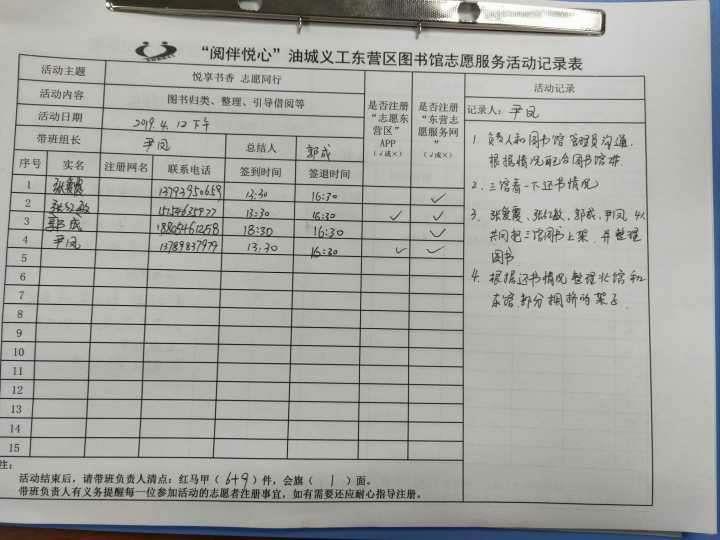 “阅伴悦心”油城义工东营区图书馆志愿服务活动记录表
活动主题 悦享书香 志愿同行
活动内容 图书归类、整理、引导借阅等
活动日期 2019.4.12 下午
带班组长 尹凤 总结人 郭成
是否注册“志愿东营区”APP（√或×）
是否注册“东营志愿服务网”（√或×）
活动记录
记录人： 尹凤
序号 实名 注册网名 联系电话 签到时间 签退时间
1 13793950659 13:30 16:30 ✓
2 张红敏 13:30 16:30 ✓ ✓
3 郭成 18:30 16:30 ✓
4 尹凤 13789837979 13:30 16:30 ✓ ✓
5
6
7
8
9
10
11
12
13
14
15
1. 负责人和图书馆管理员沟通，
根据情况配合图书馆
2. 三馆看一下还书情况
3. 张红敏、郭成、尹凤 4人
共同把三馆图书上架，并整理
图书
4. 根据还书情况整理北馆和
东馆部分拥挤的架子.
注：
活动结束后，请带班负责人清点：红马甲（ 6+9 ）件，会旗（ 1 ）面。
带班负责人有义务提醒每一位参加活动的志愿者注册事宜，如有需要还应耐心指导注册。